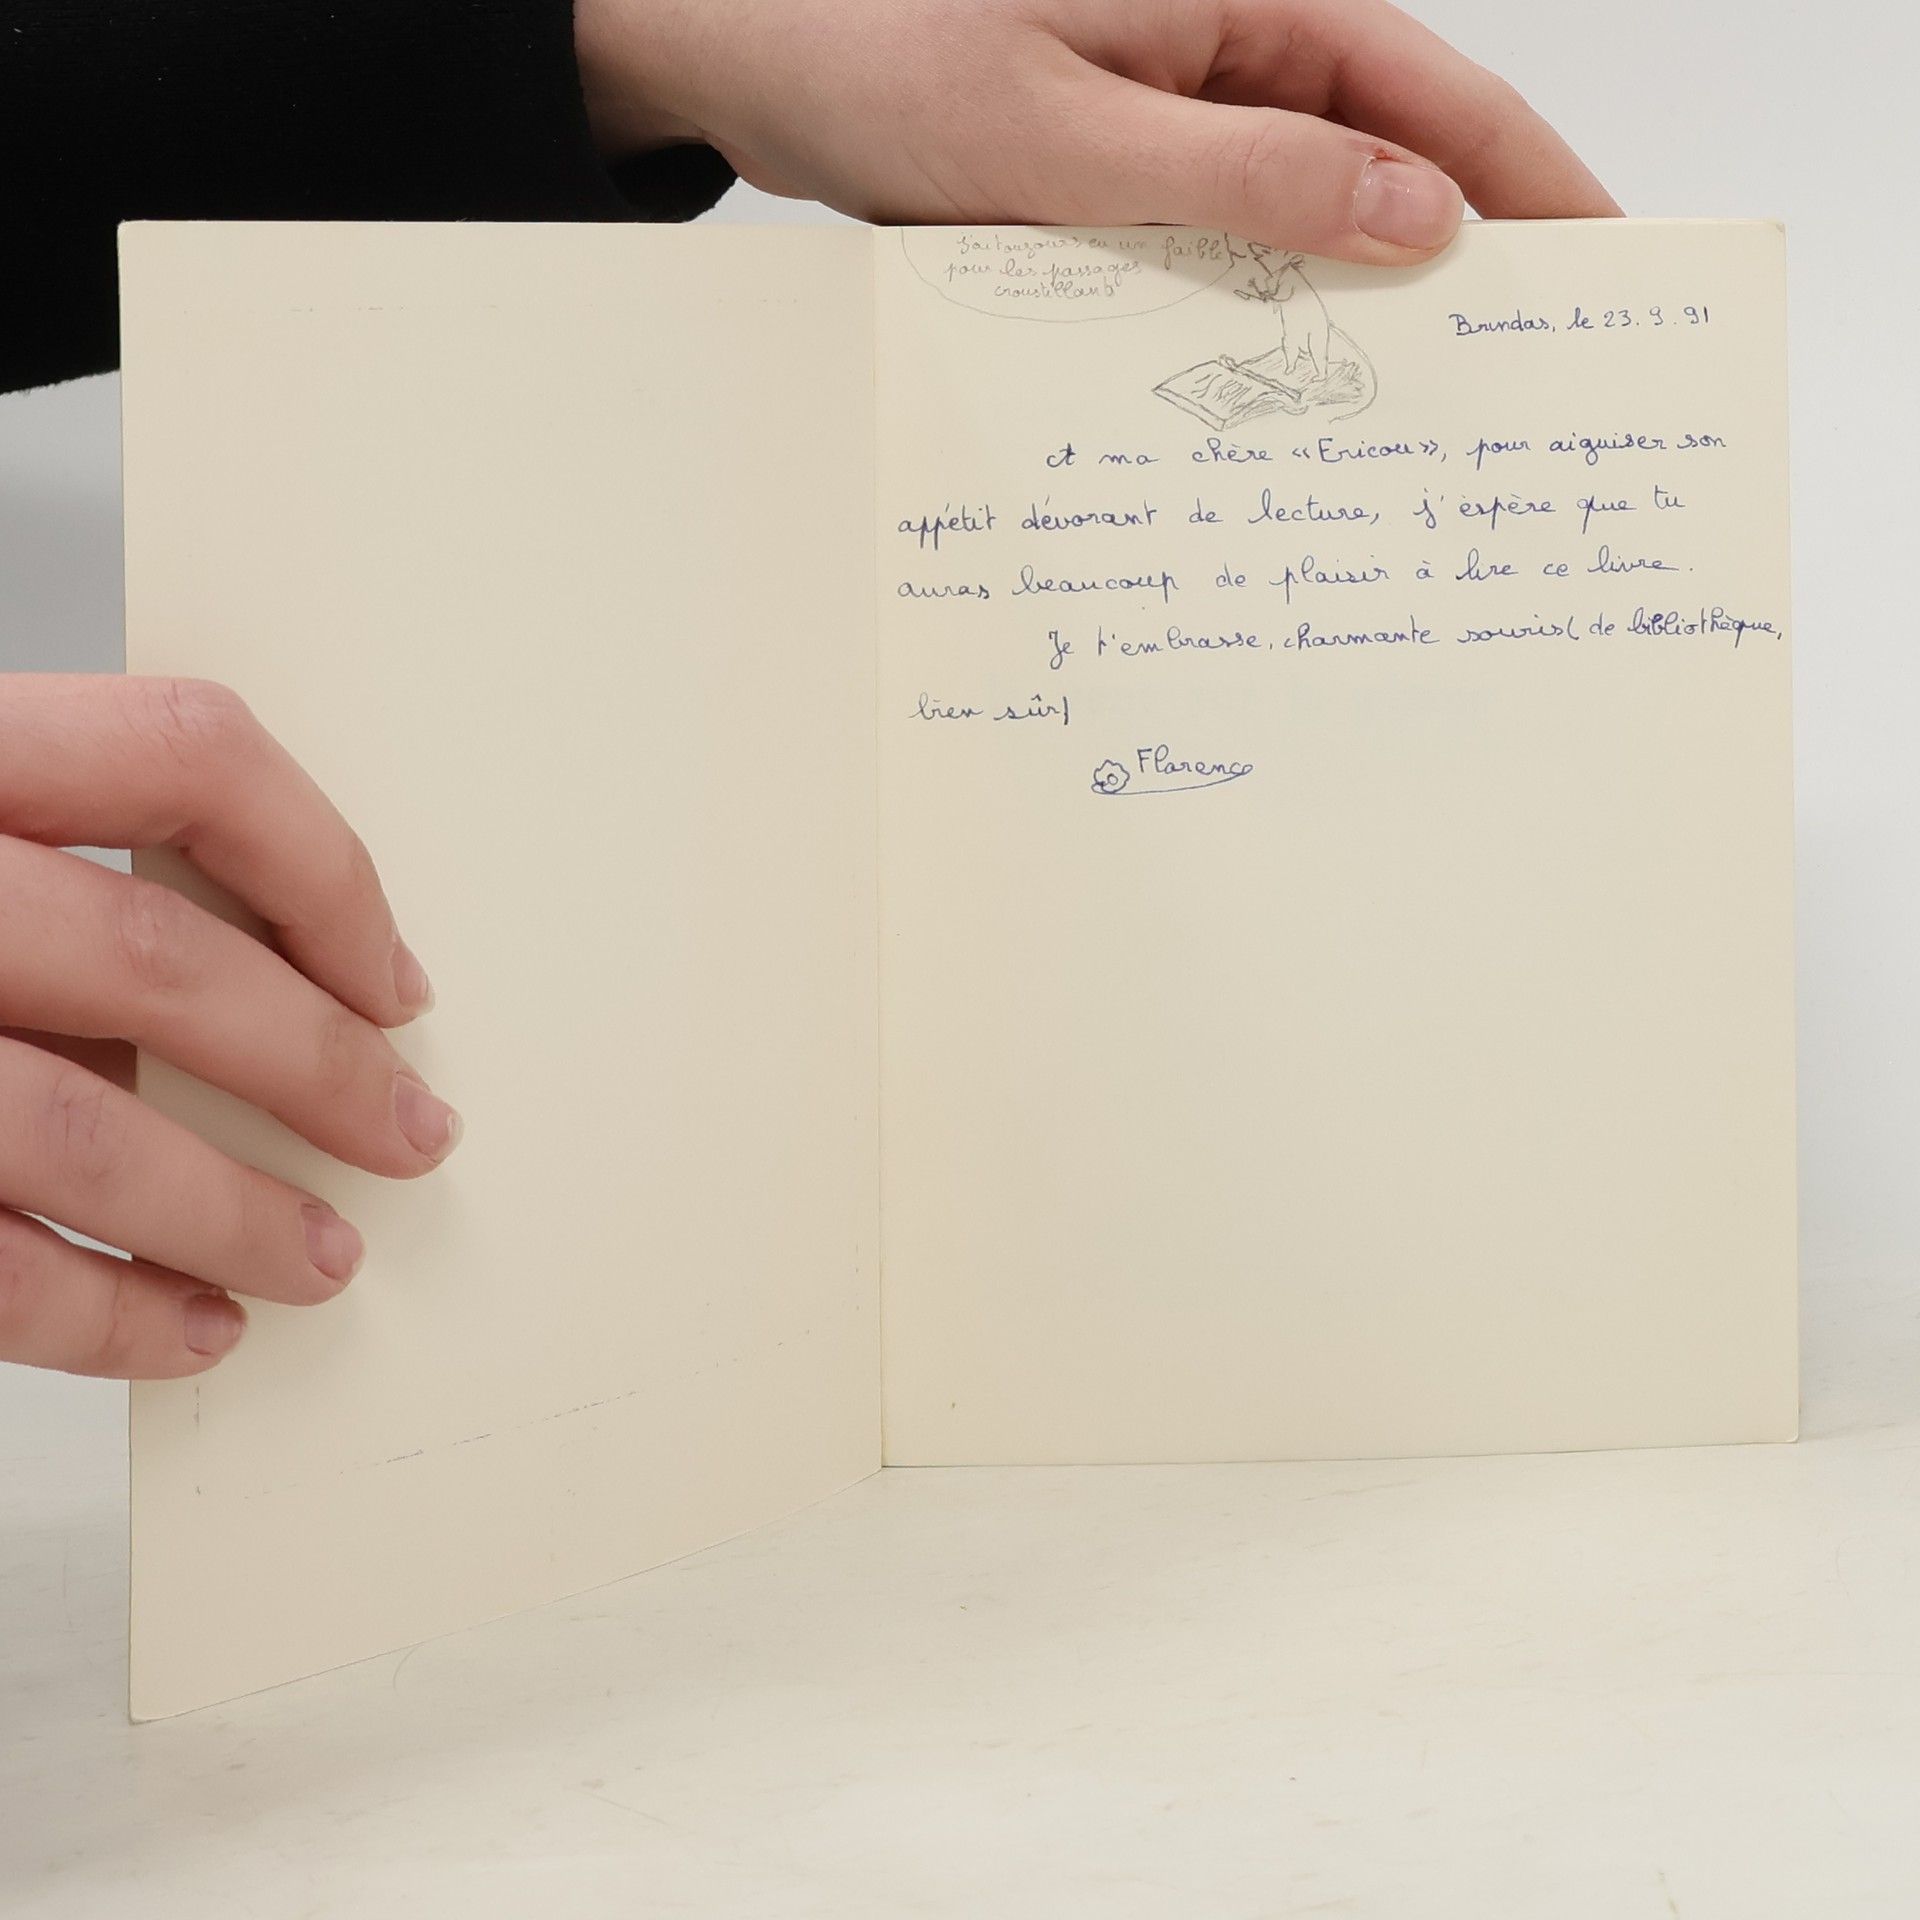 J'ai toujours eu un faible
pour les passages
croustillants
Brindas, le 23.9.91
A ma chère «Ericou», pour aiguiser son
appétit dévorant de lecture, j'èspère que tu
auras beaucoup de plaisir à lire ce livre.
Je t'embrasse, charmante souris( de bibliothèque,
bien sûr)
Florence